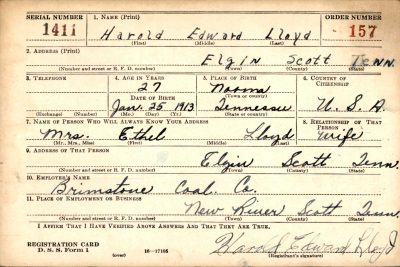 SERIAL NUMBER 1. NAME (Print) ORDER NUMBER
1411 Harold Edward Lloyd 157
(First) (Middle) (Last)
2. ADDRESS (Print)
Elgin Scott TENN.
(Number and street or R. F. D. number) (Town) (County) (State)
3. TELEPHONE 4. AGE IN YEARS 5. PLACE OF BIRTH 6. COUNTRY OF CITIZENSHIP
27 Norma
DATE OF BIRTH (Town or county)
Jan. 25 1913 Tennessee U. S. A
(Exchange) (Number) (Mo.) (Day) (Yr.) (State or country)
7. NAME OF PERSON WHO WILL ALWAYS KNOW YOUR ADDRESS 8. RELATIONSHIP OF THAT PERSON
Mrs. Ethel Lloyd Wife
(Mr., Mrs., Miss) (First) (Middle) (Last)
9. ADDRESS OF THAT PERSON
Elgin Scott Tenn.
(Number and street or R. F. D. number) (Town) (County) (State)
10. EMPLOYER'S NAME
Brimstone Coal. Co.
11. PLACE OF EMPLOYMENT OR BUSINESS
New River Scott Tenn.
(Number and street or R. F. D. number) (Town) (County) (State)
I AFFIRM THAT I HAVE VERIFIED ABOVE ANSWERS AND THAT THEY ARE TRUE.
REGISTRATION CARD
D. S. S. Form 1 (over) 16—17105 Harold Edward Lloyd
(Registrant's signature)